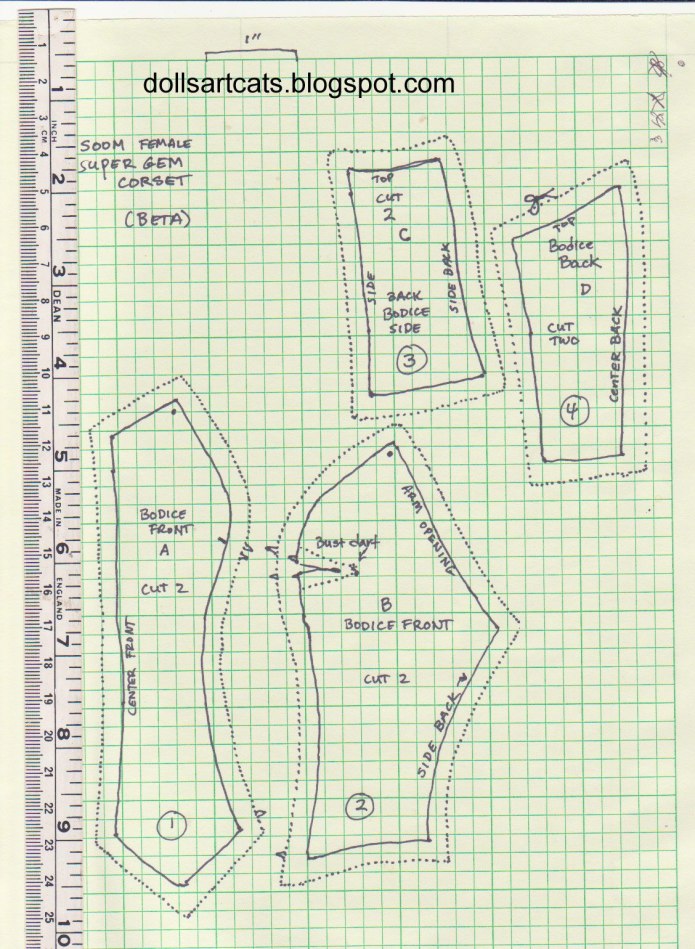 1"
dollsartcats.blogspot.com
SOOM FEMALE
SUPER GEM
CORSET
(BETA)
TOP
CUT
2
C
SIDE
SIDE BACK
BACK
BODICE
SIDE
3
TOP
Bodice
Back
D
CUT
TWO
CENTER BACK
4
BODICE
FRONT
A
CUT 2
CENTER FRONT
1
ARM OPENING
Bust dart
B
BODICE FRONT
CUT 2
SIDE BACK
2
INCH
CM
DEAN
MADE IN
ENGLAND
1
2
3
4
5
6
7
8
9
10
1
2
3
4
5
6
7
8
9
10
11
12
13
14
15
16
17
18
19
20
21
22
23
24
25